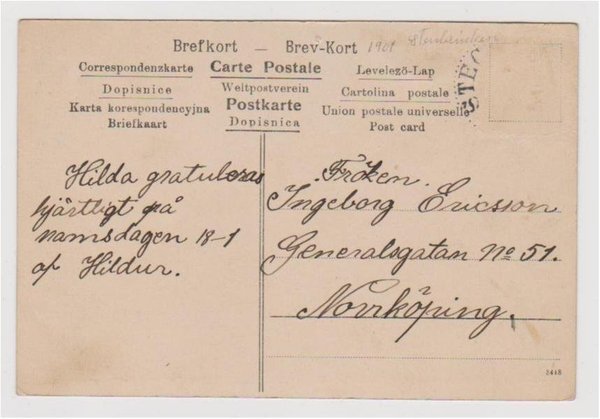 Brefkort — Brev-Kort 1921
Correspondenzkarte Carte Postale Levelező-Lap
Dopisnice Weltpostverein Cartolina postale
Karta korespondencyjna Postkarte Union postale universelle
Briefkaart Dopisnica Post card
STEC
Hilda gratuleras
hjärtligt på
namsdagen 18-1
af Hildur.
Fröken.
Ingeborg Ericsson
Generalsgatan No 51.
Norrköping.
3448